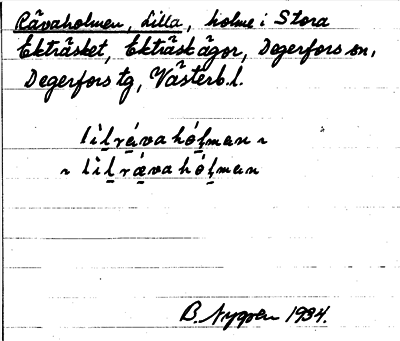 Rävaholmen, Lilla, holme i Stora
Ekträsket, Ekträsk ägor, Degerfors sn,
Degerfors tg, Västerb. l.
lìlrávahólman ~
~ lìlrǽvahólman
B. Nygren 1934.